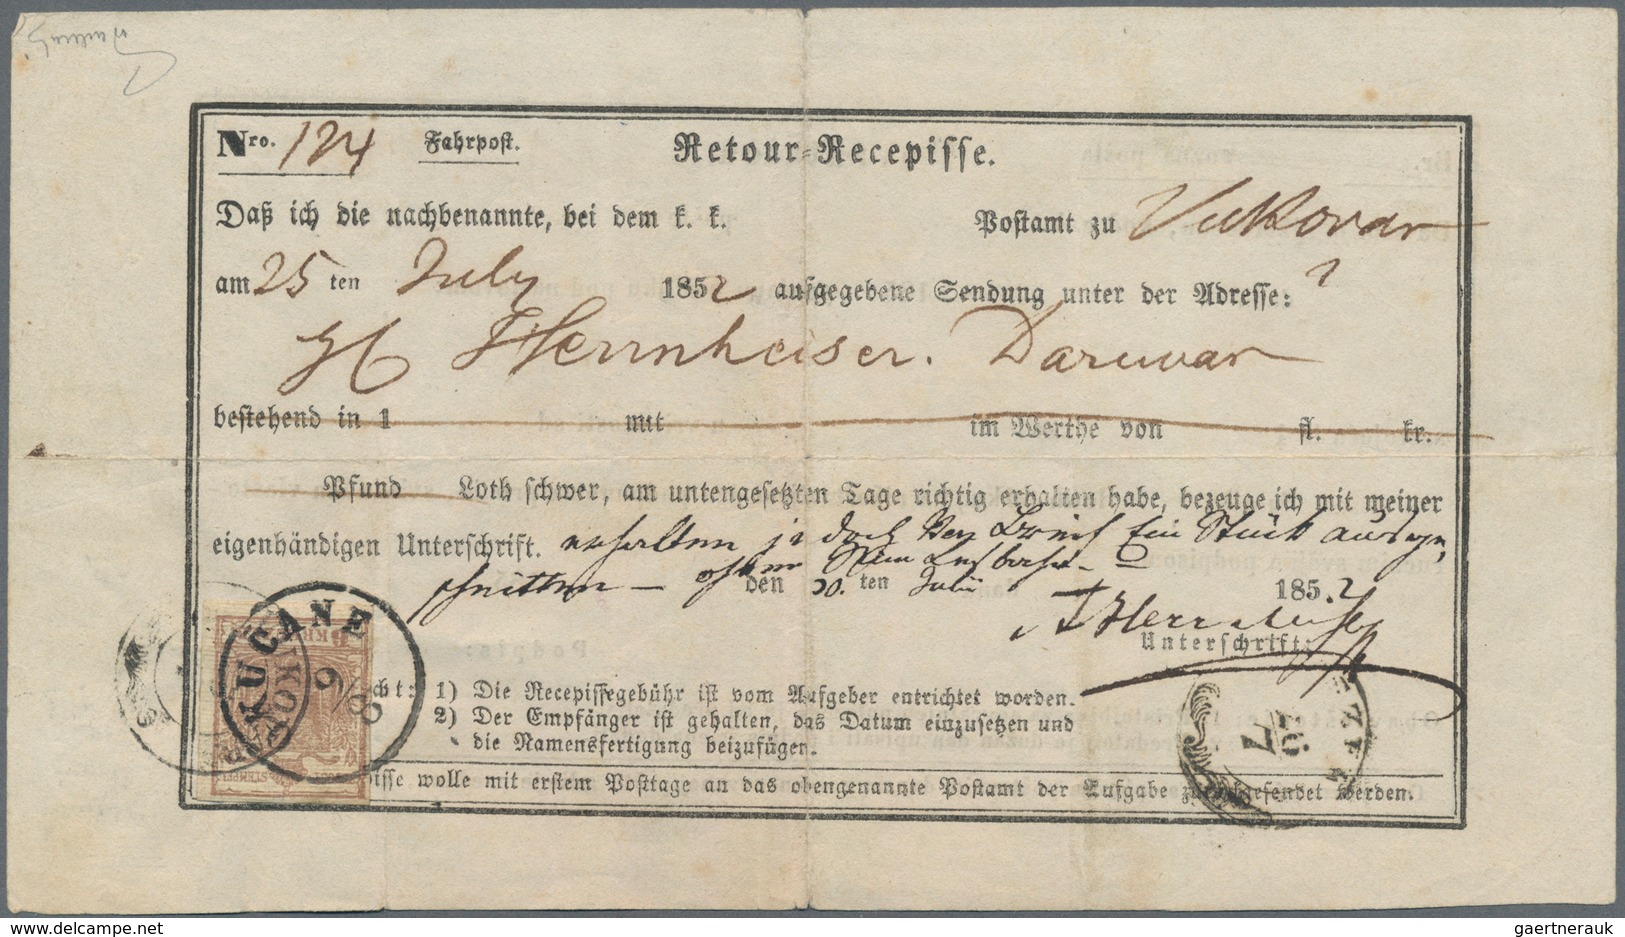 Nro. 124 Fahrpost. Retour-Recepisse.
Daß ich die nachbenannte, bei dem k. k. Postamt zu Vukovar
am 25 ten July 1852 aufgegebene Sendung unter der Adresse:
Herrnheiser. Daruvar
bestehend in 1 mit im Werthe von fl. kr.
Pfund Loth schwer, am untengesetzten Tage richtig erhalten habe, bezeuge ich mit meiner
eigenhändigen Unterschrift. erhalten jedoch den Brief Ein Stück ausge
schnitten —
den 30. ten Juli 1852
Unterschrift:
cht: 1) Die Recepissegebühr ist vom Aufgeber entrichtet worden.
2) Der Empfänger ist gehalten, das Datum einzusetzen und
die Namensfertigung beizufügen.
isse wolle mit erstem Posttage an das obengenannte Postamt der Aufgabe zurückgesendet werden.
gaertnerauk